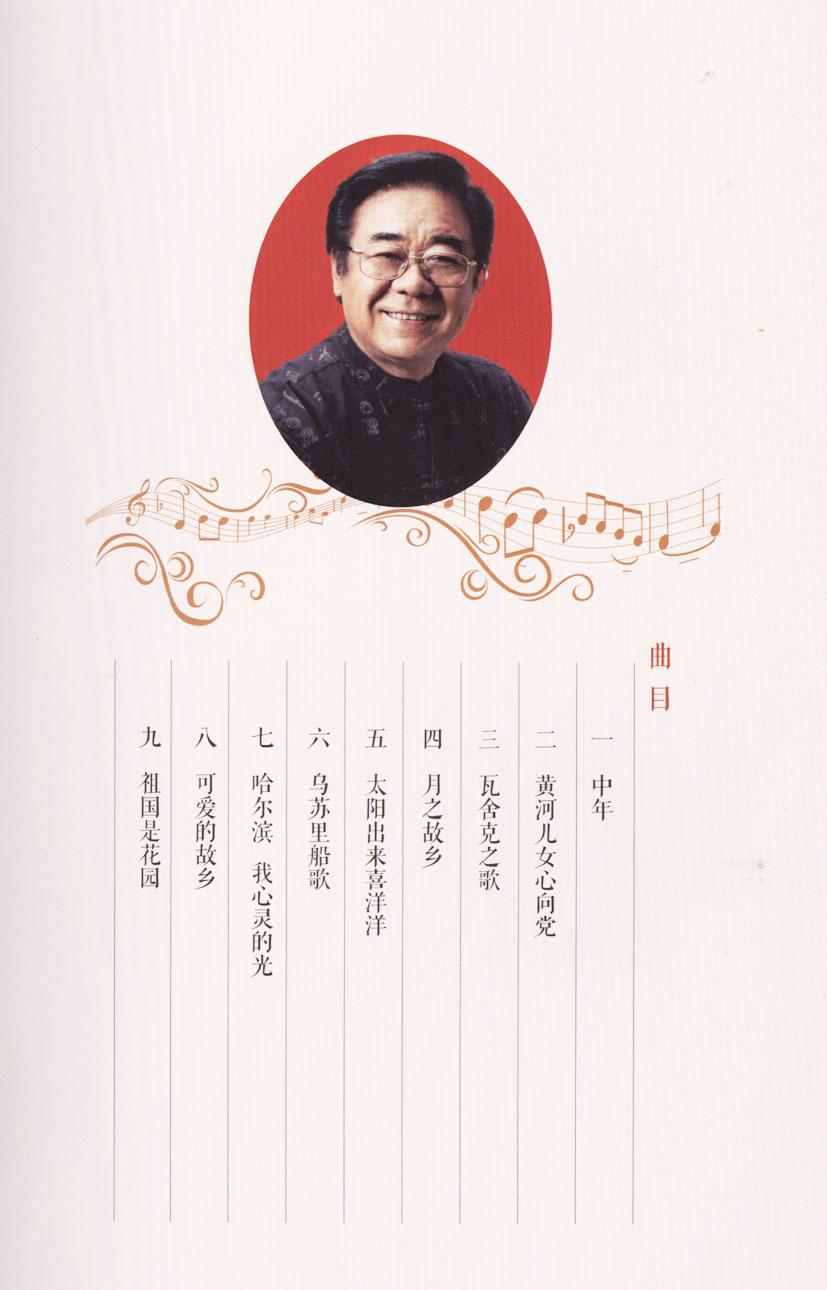 曲目
一 中年
二 黄河儿女心向党
三 瓦舍克之歌
四 月之故乡
五 太阳出来喜洋洋
六 乌苏里船歌
七 哈尔滨 我心灵的光
八 可爱的故乡
九 祖国是花园